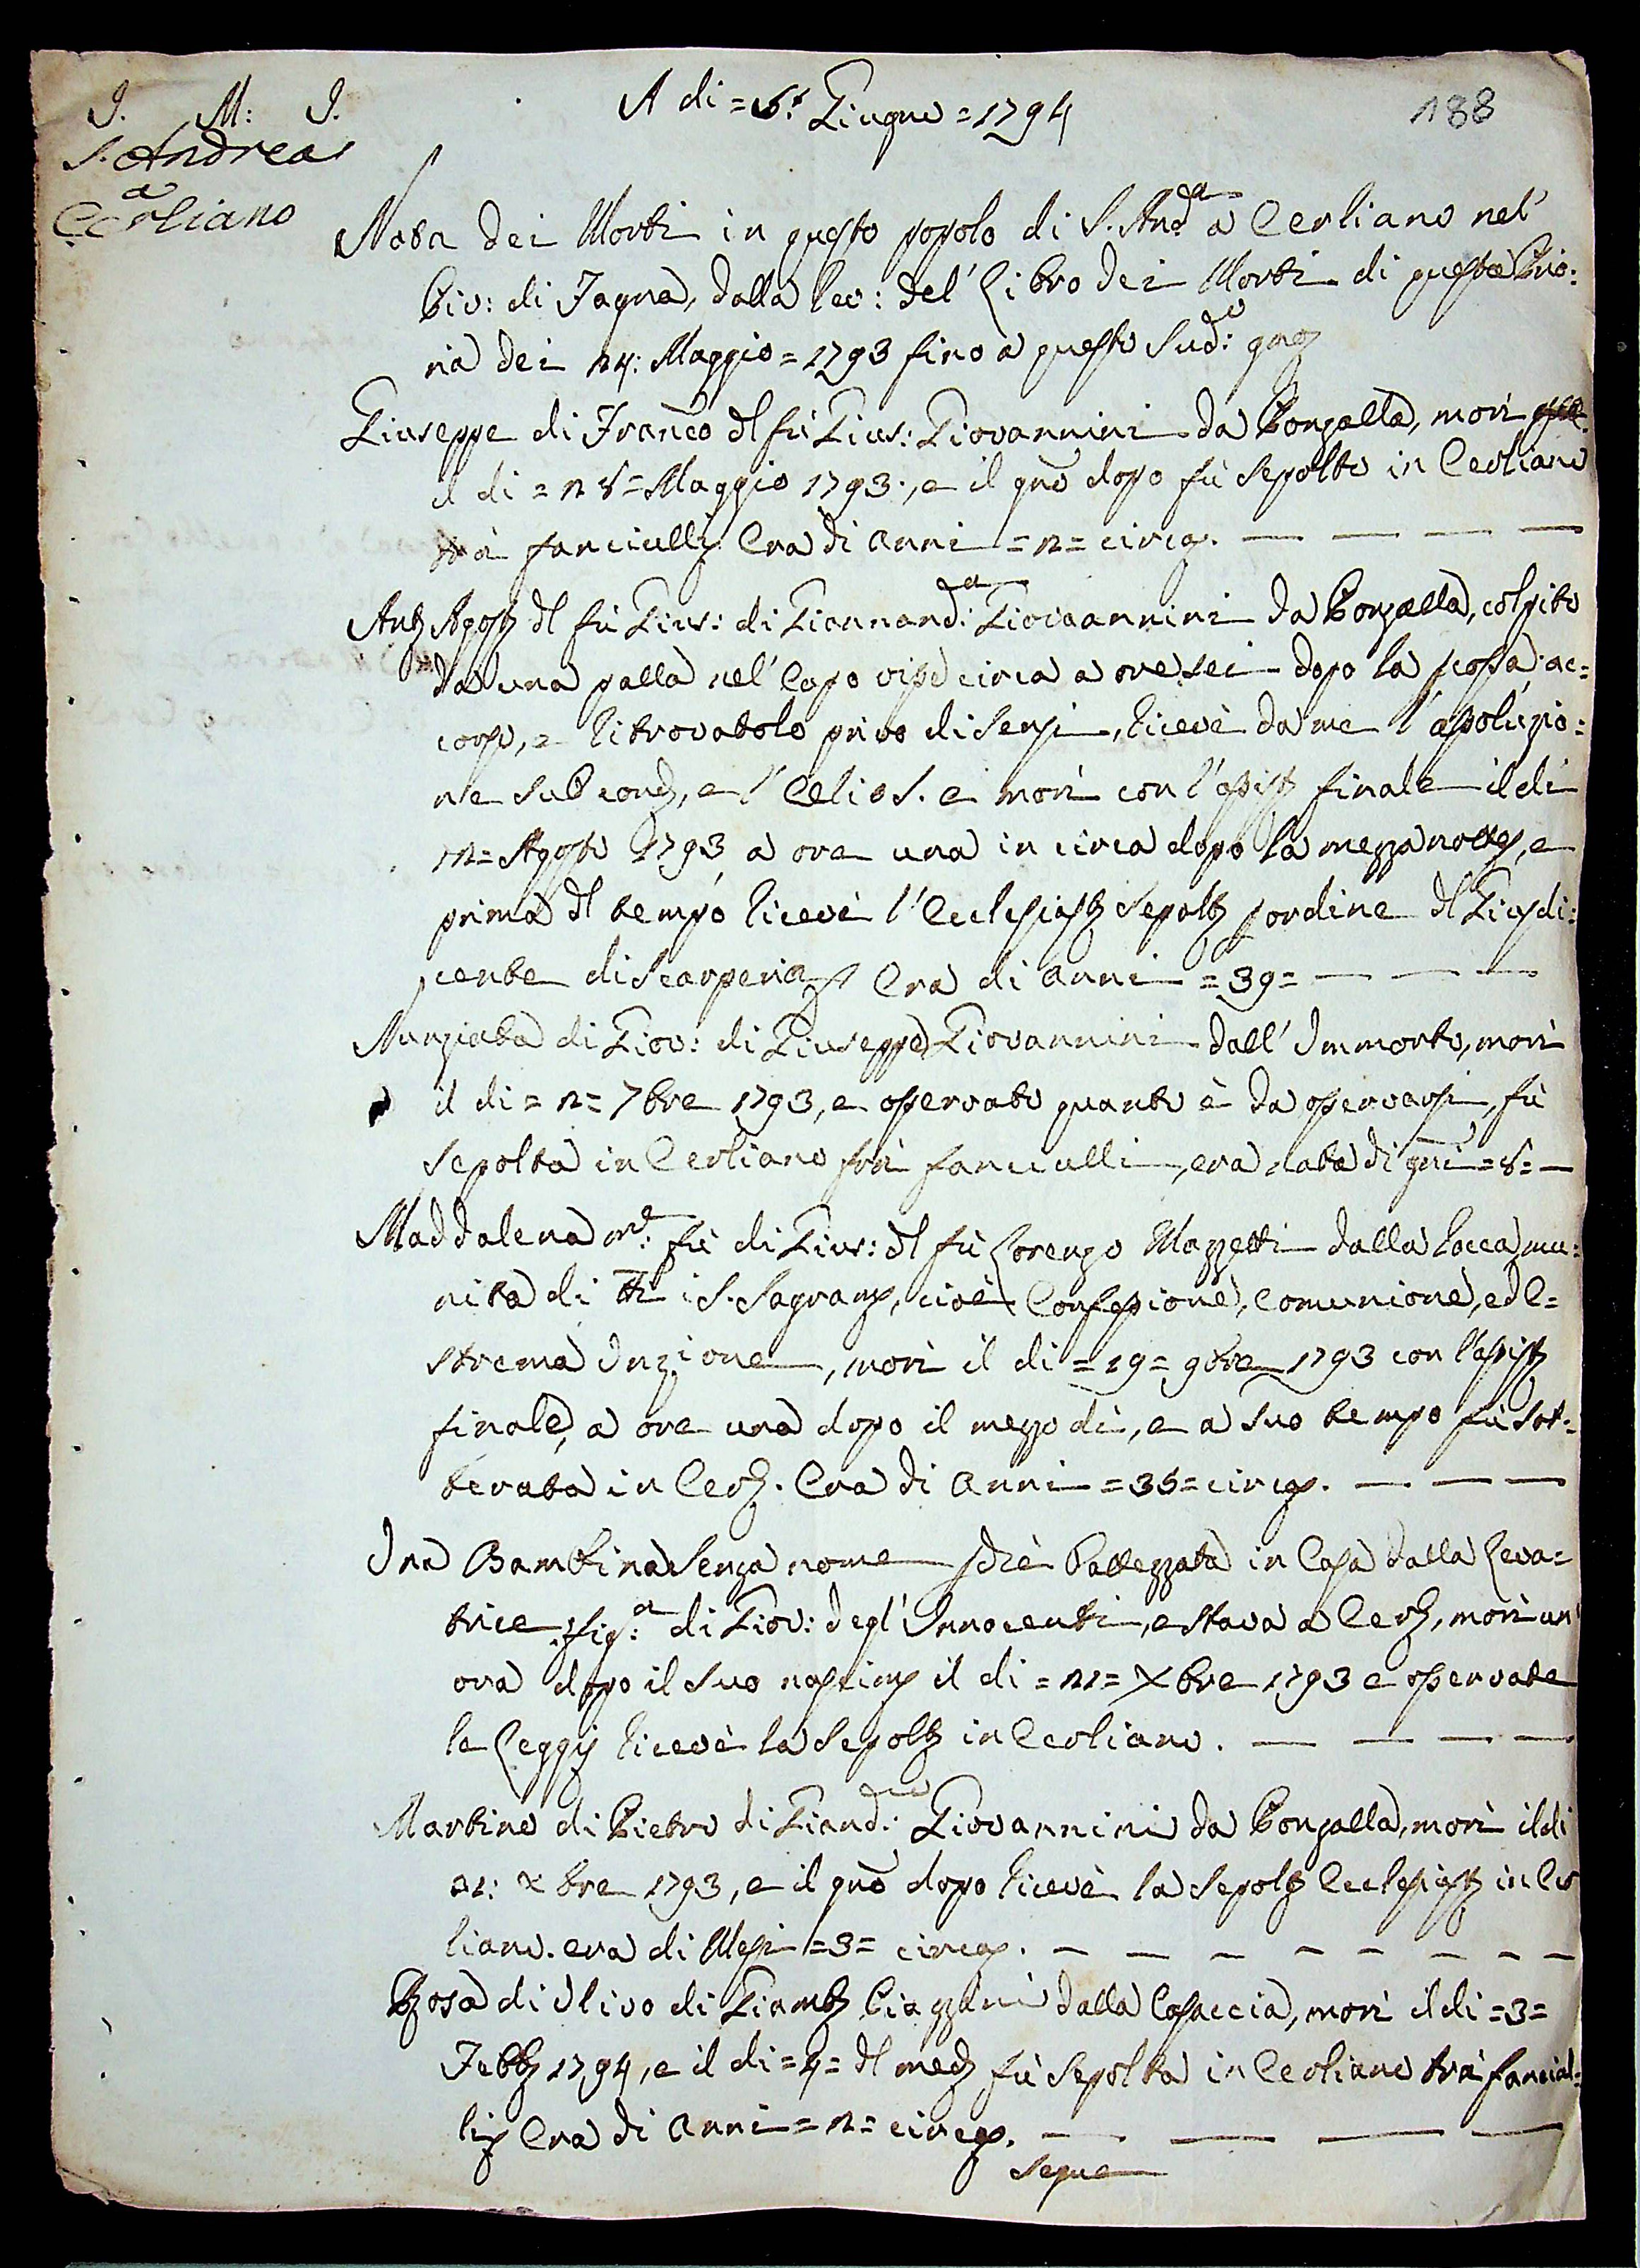 J. M: J.
A di = 6: Giugno = 1794
188
S. Andrea
a
Cerliano
Nota dei Morti in questo popolo di S. And:a a Cerliano nel'
Piv: di Fagna, dalla Rec: del' Libro dei Morti di questa Prio:
ria dei 24: Maggio = 1793 fino a questo Sud:o
Giuseppe di Franco dl fù Gius: Giovannini da Ponzalla, morì
il di = 28 = Maggio 1793., e il gno dopo fù Sepolto in Cerliano
tra fanciulli Era di Anni = 2 = circa.
Agost dl fù Gius: di Giannand:a Giovaannini da Ponzalla, colpito
da una palla nel' Capo circa a ore sei dopo la scossa ac=
corso, e Ritrovatolo privo di Sensi, Ricevè da me l'assoluzio:
ne Sub cond, e l' Olio S. e morì con l'assist finale il dì
12 = Agosto 1793 a ore una in circa dopo la mezzanotte, e
prima dl tempo Ricevè l' Ecclesiast Sepolt p ordine dl Giusdi:
cente di Scarperia Era di Anni = 39 =
Nunziata di Giov: di Giuseppe Giovannini dall' Immorto, morì
il di = 2 = 7bre 1793, e osservato quanto è da osservarsi, fù
Sepolta in Cerliano frà fanciulli, era nata di gni = 8 =
Maddalena m:e fù di Gius: dl fù Lorenzo Mazzetti dalla Rocca mu:
nita di tti i S. Sagram, cioè Confessione, Comunione, ed E=
strema Unzione, morì il di = 19 = 9bre 1793 con l'assist
finale, a ore una dopo il mezzo di, e a suo tempo fù Sot:
terata in Cerl. Era di Anni = 35 = circa.
Una Bambina Senza nome p chè Battezzata in Casa dalla Leva=
trice, fig:a di Giov: degl' Innocenti, e stava a Cerl, morì un'
ora dopo il Suo nascim il di = 21 = Xbre 1793 e osservate
le Leggi Ricevè la Sepolt in Cerliano.
Martino di Pietro di Giand: Giovannini da Ponzalla, morì il di
21: Xbre 1793, e il gno dopo Ricevè la Sepolt Ecclesiast in Cer
liano. era di Mesi = 3 = circa.
Rosa di Ulivo di Giamb Piazzini dalla Casaccia, morì il di = 3 =
Febb 1794, e il di = 4 = dl med fù Sepolta in Cerliano trà fanciul:
li Era di Anni = 2 = circa.
Segue